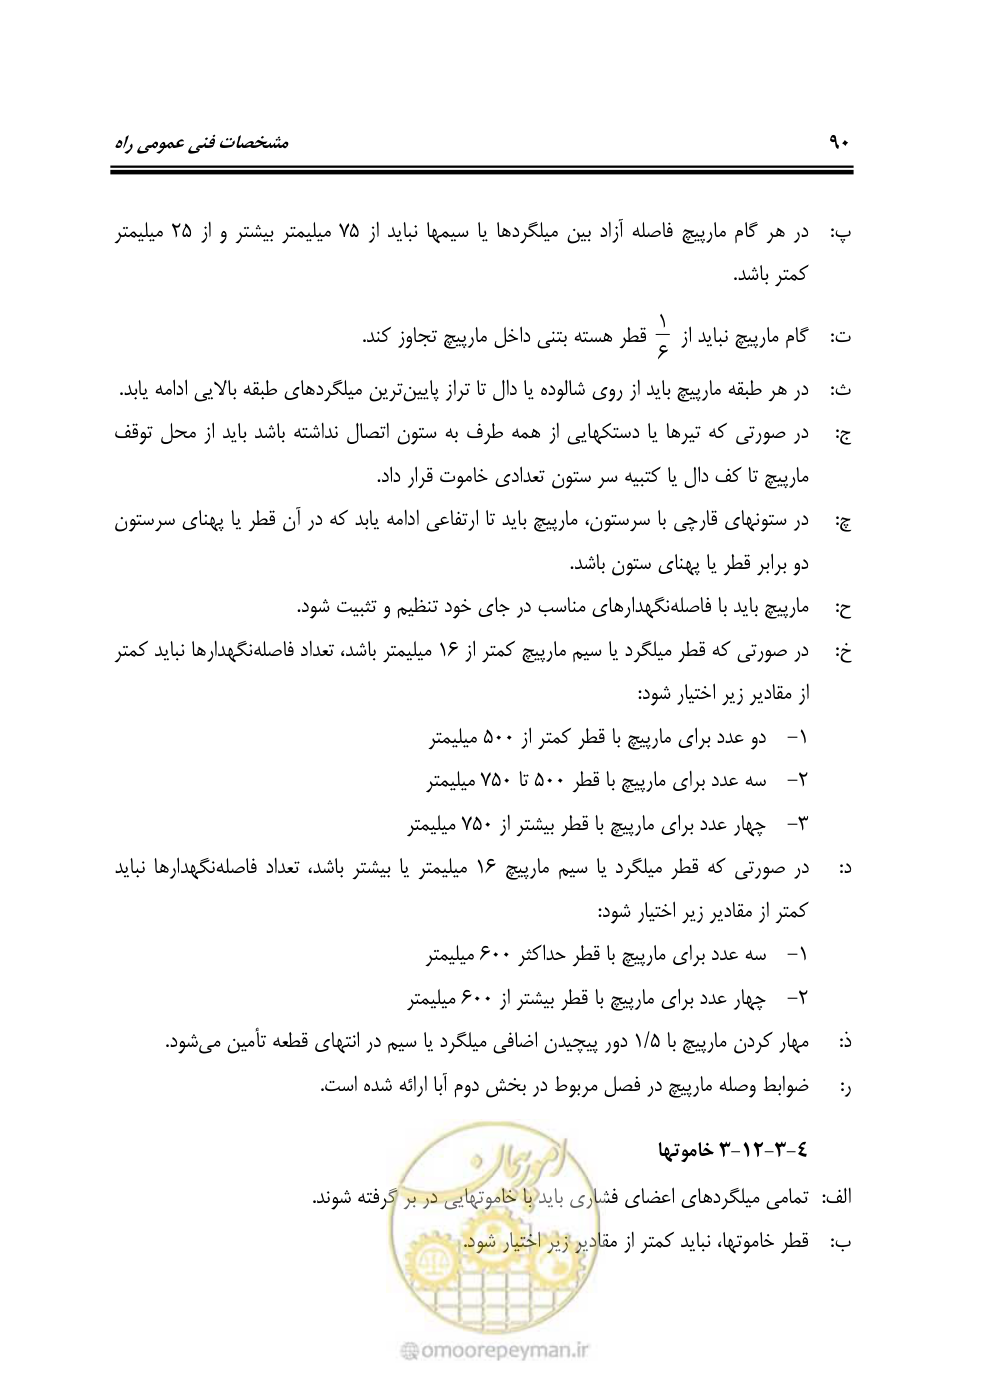 ۹۰ مشخصات فنی عمومی راه
پ: در هر گام مارپیچ فاصله آزاد بین میلگردها یا سیمها نباید از ۷۵ میلیمتر بیشتر و از ۲۵ میلیمتر
کمتر باشد.
ت: گام مارپیچ نباید از ۱/۶ قطر هسته بتنی داخل مارپیچ تجاوز کند.
ث: در هر طبقه مارپیچ باید از روی شالوده یا دال تا تراز پایین‌ترین میلگردهای طبقه بالایی ادامه یابد.
ج: در صورتی که تیرها یا دستکهایی از همه طرف به ستون اتصال نداشته باشد باید از محل توقف
مارپیچ تا کف دال یا کتبیه سر ستون تعدادی خاموت قرار داد.
چ: در ستونهای قارچی با سرستون، مارپیچ باید تا ارتفاعی ادامه یابد که در آن قطر یا پهنای سرستون
دو برابر قطر یا پهنای ستون باشد.
ح: مارپیچ باید با فاصله‌نگهدارهای مناسب در جای خود تنظیم و تثبیت شود.
خ: در صورتی که قطر میلگرد یا سیم مارپیچ کمتر از ۱۶ میلیمتر باشد، تعداد فاصله‌نگهدارها نباید کمتر
از مقادیر زیر اختیار شود:
۱- دو عدد برای مارپیچ با قطر کمتر از ۵۰۰ میلیمتر
۲- سه عدد برای مارپیچ با قطر ۵۰۰ تا ۷۵۰ میلیمتر
۳- چهار عدد برای مارپیچ با قطر بیشتر از ۷۵۰ میلیمتر
د: در صورتی که قطر میلگرد یا سیم مارپیچ ۱۶ میلیمتر یا بیشتر باشد، تعداد فاصله‌نگهدارها نباید
کمتر از مقادیر زیر اختیار شود:
۱- سه عدد برای مارپیچ با قطر حداکثر ۶۰۰ میلیمتر
۲- چهار عدد برای مارپیچ با قطر بیشتر از ۶۰۰ میلیمتر
ذ: مهار کردن مارپیچ با ۱/۵ دور پیچیدن اضافی میلگرد یا سیم در انتهای قطعه تأمین می‌شود.
ر: ضوابط وصله مارپیچ در فصل مربوط در بخش دوم آبا ارائه شده است.
۴-۳-۱۲-۳ خاموتها
الف: تمامی میلگردهای اعضای فشاری باید با خاموتهایی در بر گرفته شوند.
ب: قطر خاموتها، نباید کمتر از مقادیر زیر اختیار شود.
امور پیمان
omoorepeyman.ir